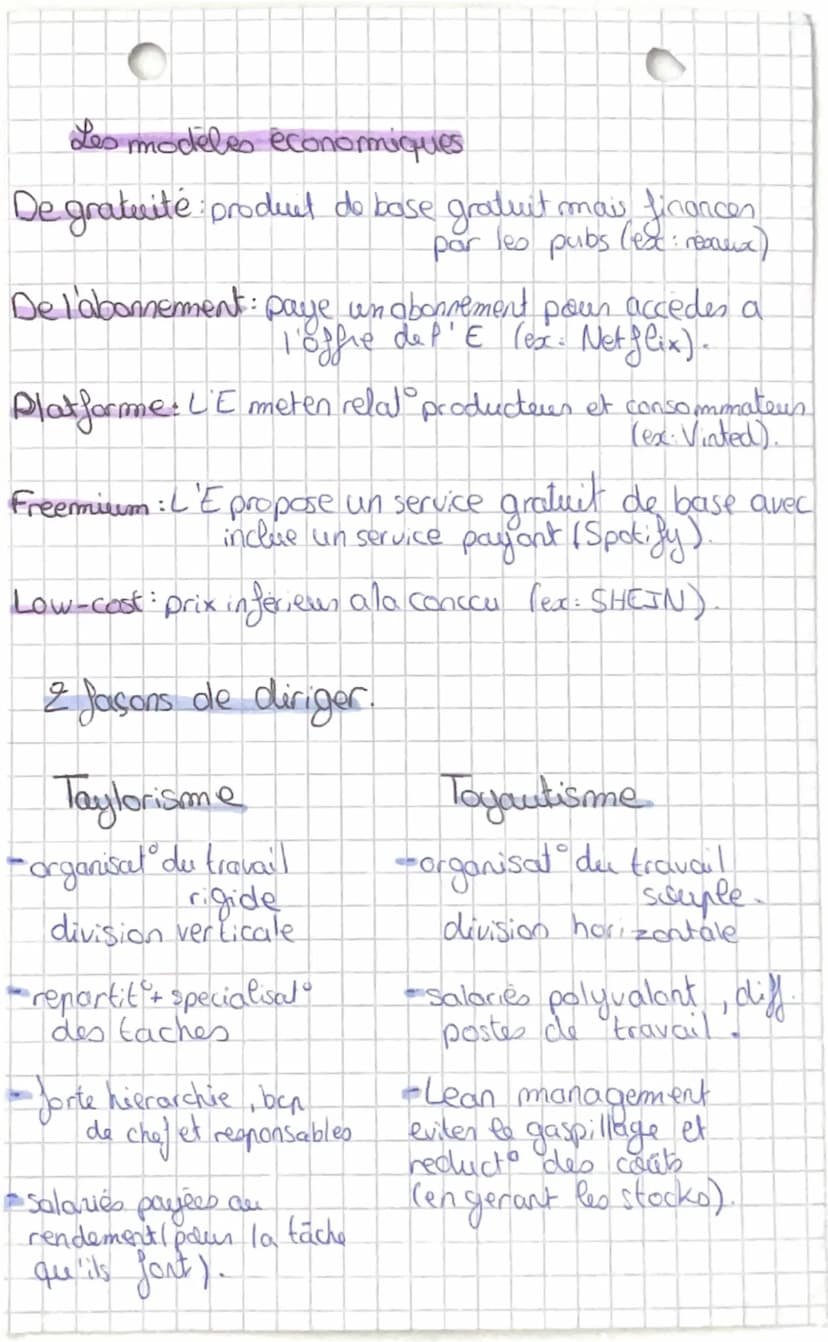 Les modèles économiques
De gratuité : produit de base gratuit mais financer
par les pubs (ex : réaux)
De l'abonnement : paye un abonnement pour acceder a
l'offre de l'E (ex : Netflix).
Platforme : L'E met en relat° producteur et consommateur
(ex : Vinted).
Freemium : L'E propose un service gratuit de base avec
inclue un service payant (Spotify).
Low-cost : prix inférieur a la conccu (ex : SHEIN).
2 façons de diriger.
Taylorisme
- organisat° du travail
rigide
division verticale
- repartit° + specialisat°
des taches
- forte hiérarchie, bcp
de chef et responsables
- salariés payées au
rendement (pour la tâche
qu'ils font).
Toyautisme
- organisat° du travail
souple.
division horizontale
- salariés polyvalant, diff.
postes de travail.
- Lean management
eviter le gaspillage et
reduct° des coûts
(en gerant les stocks).